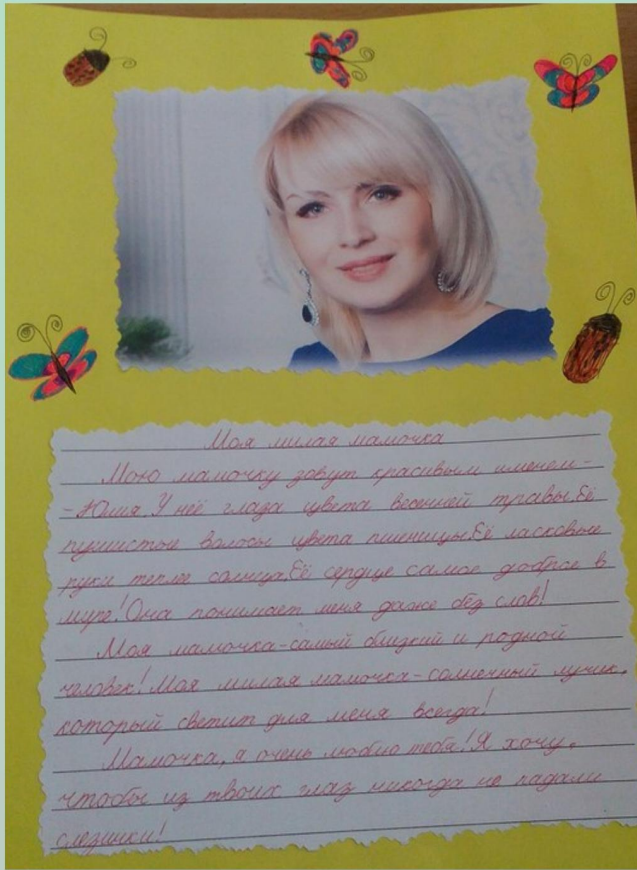 Моя милая мамочка
Мою мамочку зовут красивым именем-
-Юлия. У неё глаза цвета весенней травы. Её
пушистые волосы цвета пшеницы. Её ласковые
руки теплее солнца. Её сердце самое доброе в
мире! Она понимает меня даже без слов!
Моя мамочка-самый близкий и родной
человек! Моя милая мамочка-солнечный лучик,
который светит для меня всегда!
Мамочка, я очень люблю тебя! Я хочу,
чтобы из твоих глаз никогда не падали
слезинки!